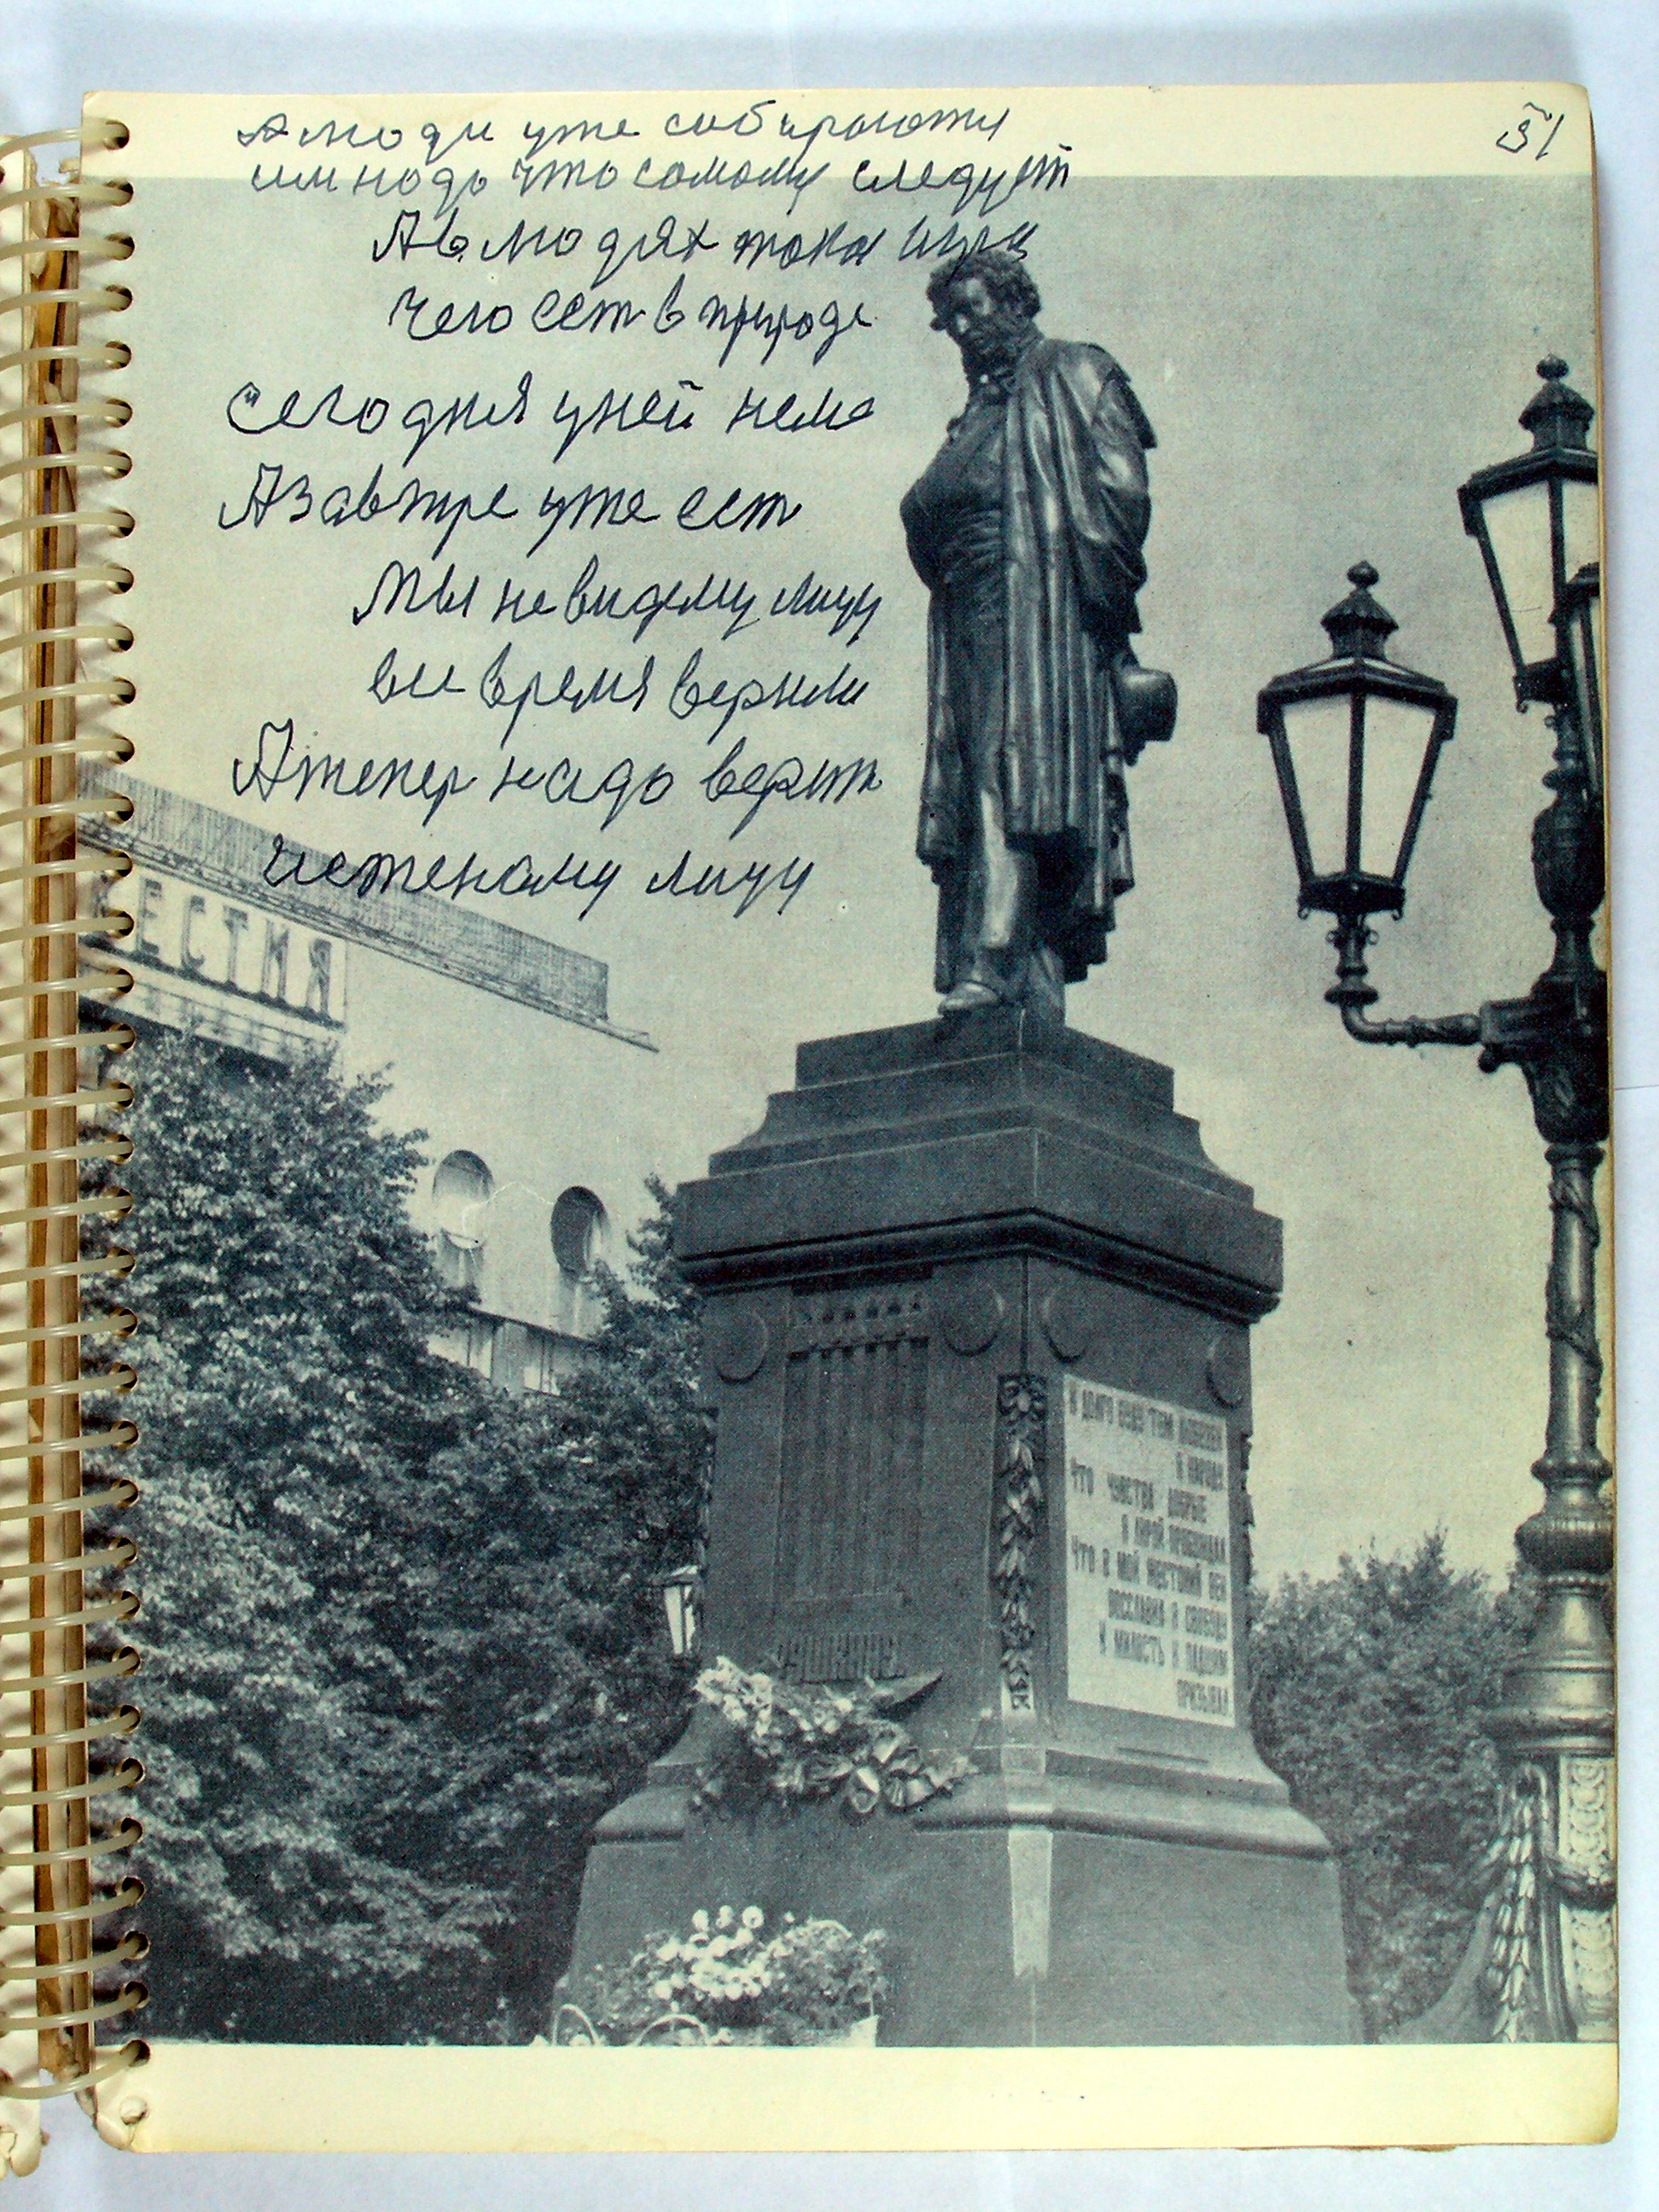 51
А люди уже собираются
им надо что самому следует
А в людях така игра
чего ест в природе
Сегодня у ней неме
А завтре уже ест
Мы не видему лицу
все время верили
А тепер надо верит
истеному лицу
ЕСТИЯ
И ДОЛГО БУДУ ТЕМ ЛЮБЕЗЕН
Я НАРОДУ,
ЧТО ЧУВСТВА ДОБРЫЕ
Я ЛИРОЙ ПРОБУЖДАЛ,
ЧТО В МОЙ ЖЕСТОКИЙ ВЕК
ВОССЛАВИЛ Я СВОБОДУ
И МИЛОСТЬ К ПАДШИМ
ПРИЗЫВАЛ